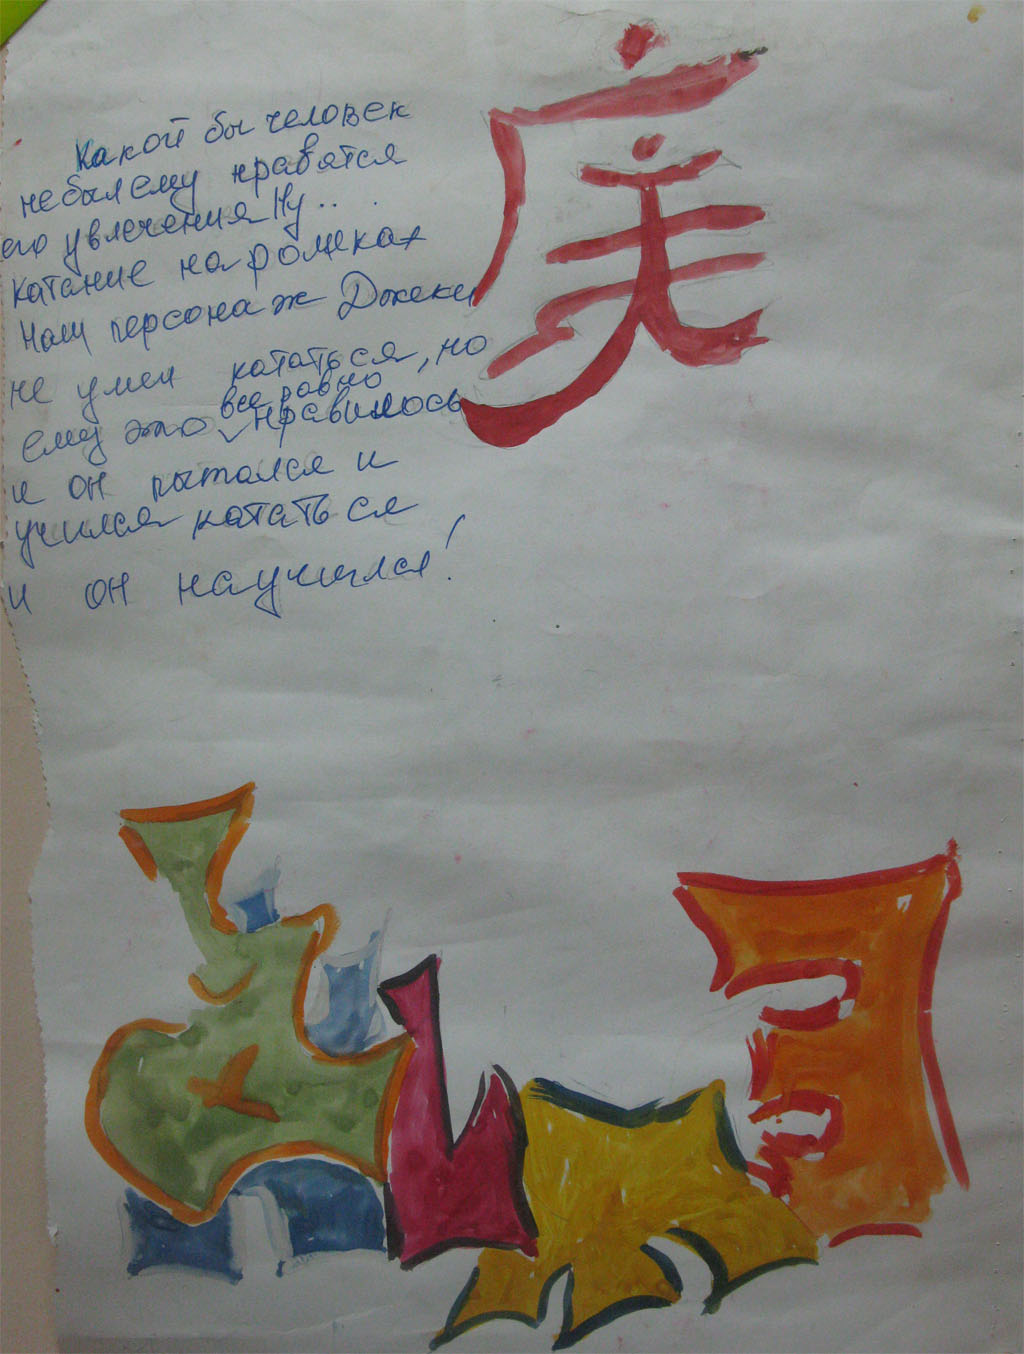 Какой бы человек
небыл ему нравятся
его увлечения Ну...
катание на роликах
Наш персонаж Джеки
не умел кататься, но
все равно
ему это нравилось
и он пытался и
учился кататься
и он научился!